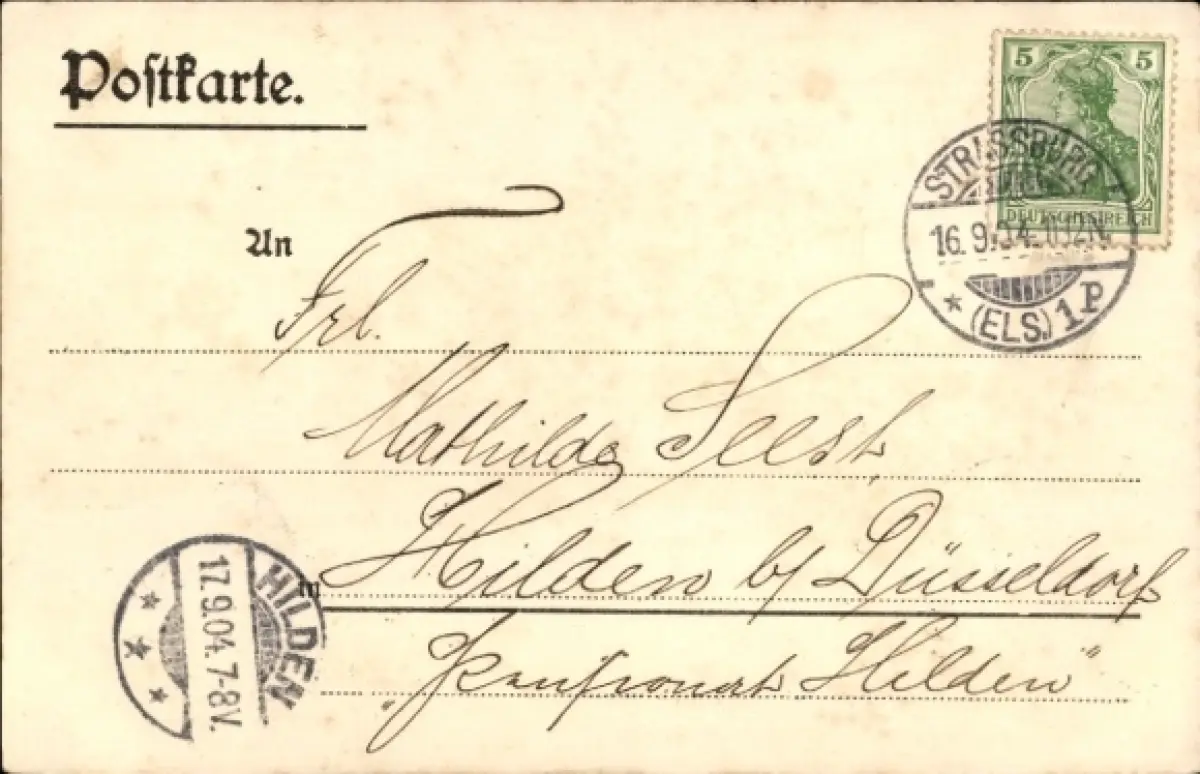 Postkarte.
5 5
DEUTSCHES REICH
STRASSBURG
16.9.04. 11-12N.
* (ELS.) 1 P
An
Frl.
Mathilde Seest
in Hilden b/ Düsseldorf
"Pensionat Hilden"
HILDEN
17.9.04. 7-8V.